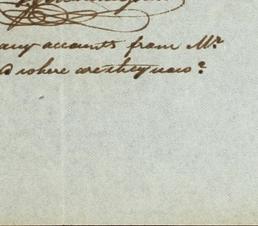 any accounts from Mr.
where are they now?